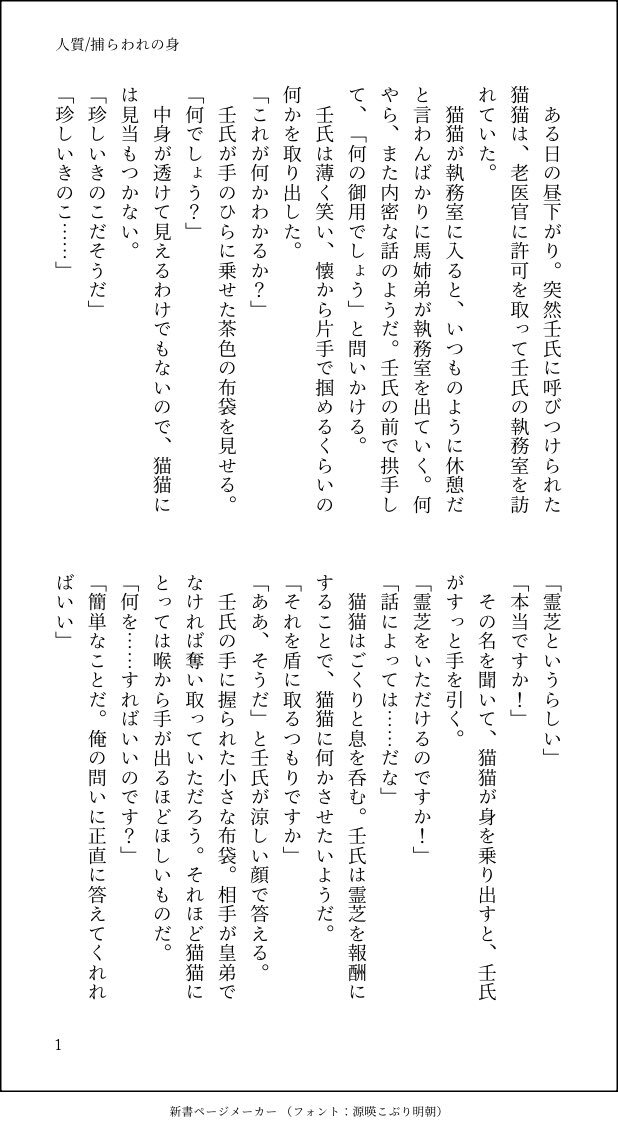 人質/捕らわれの身
　ある日の昼下がり。突然壬氏に呼びつけられた
猫猫は、老医官に許可を取って壬氏の執務室を訪
れていた。
　猫猫が執務室に入ると、いつものように休憩だ
と言わんばかりに馬姉弟が執務室を出ていく。何
やら、また内密な話のようだ。壬氏の前で拱手し
て、「何の御用でしょう」と問いかける。
　壬氏は薄く笑い、懐から片手で掴めるくらいの
何かを取り出した。
「これが何かわかるか？」
　壬氏が手のひらに乗せた茶色の布袋を見せる。
「何でしょう？」
　中身が透けて見えるわけでもないので、猫猫に
は見当もつかない。
「珍しいきのこだそうだ」
「珍しいきのこ……」
「霊芝というらしい」
「本当ですか！」
　その名を聞いて、猫猫が身を乗り出すと、壬氏
がすっと手を引く。
「霊芝をいただけるのですか！」
「話によっては……だな」
　猫猫はごくりと息を呑む。壬氏は霊芝を報酬に
することで、猫猫に何かさせたいようだ。
「それを盾に取るつもりですか」
「ああ、そうだ」と壬氏が涼しい顔で答える。
　壬氏の手に握られた小さな布袋。相手が皇弟で
なければ奪い取っていただろう。それほど猫猫に
とっては喉から手が出るほどほしいものだ。
「何を……すればいいのです？」
「簡単なことだ。俺の問いに正直に答えてくれれ
ばいい」
1
新書ページメーカー（フォント：源暎こぶり明朝）